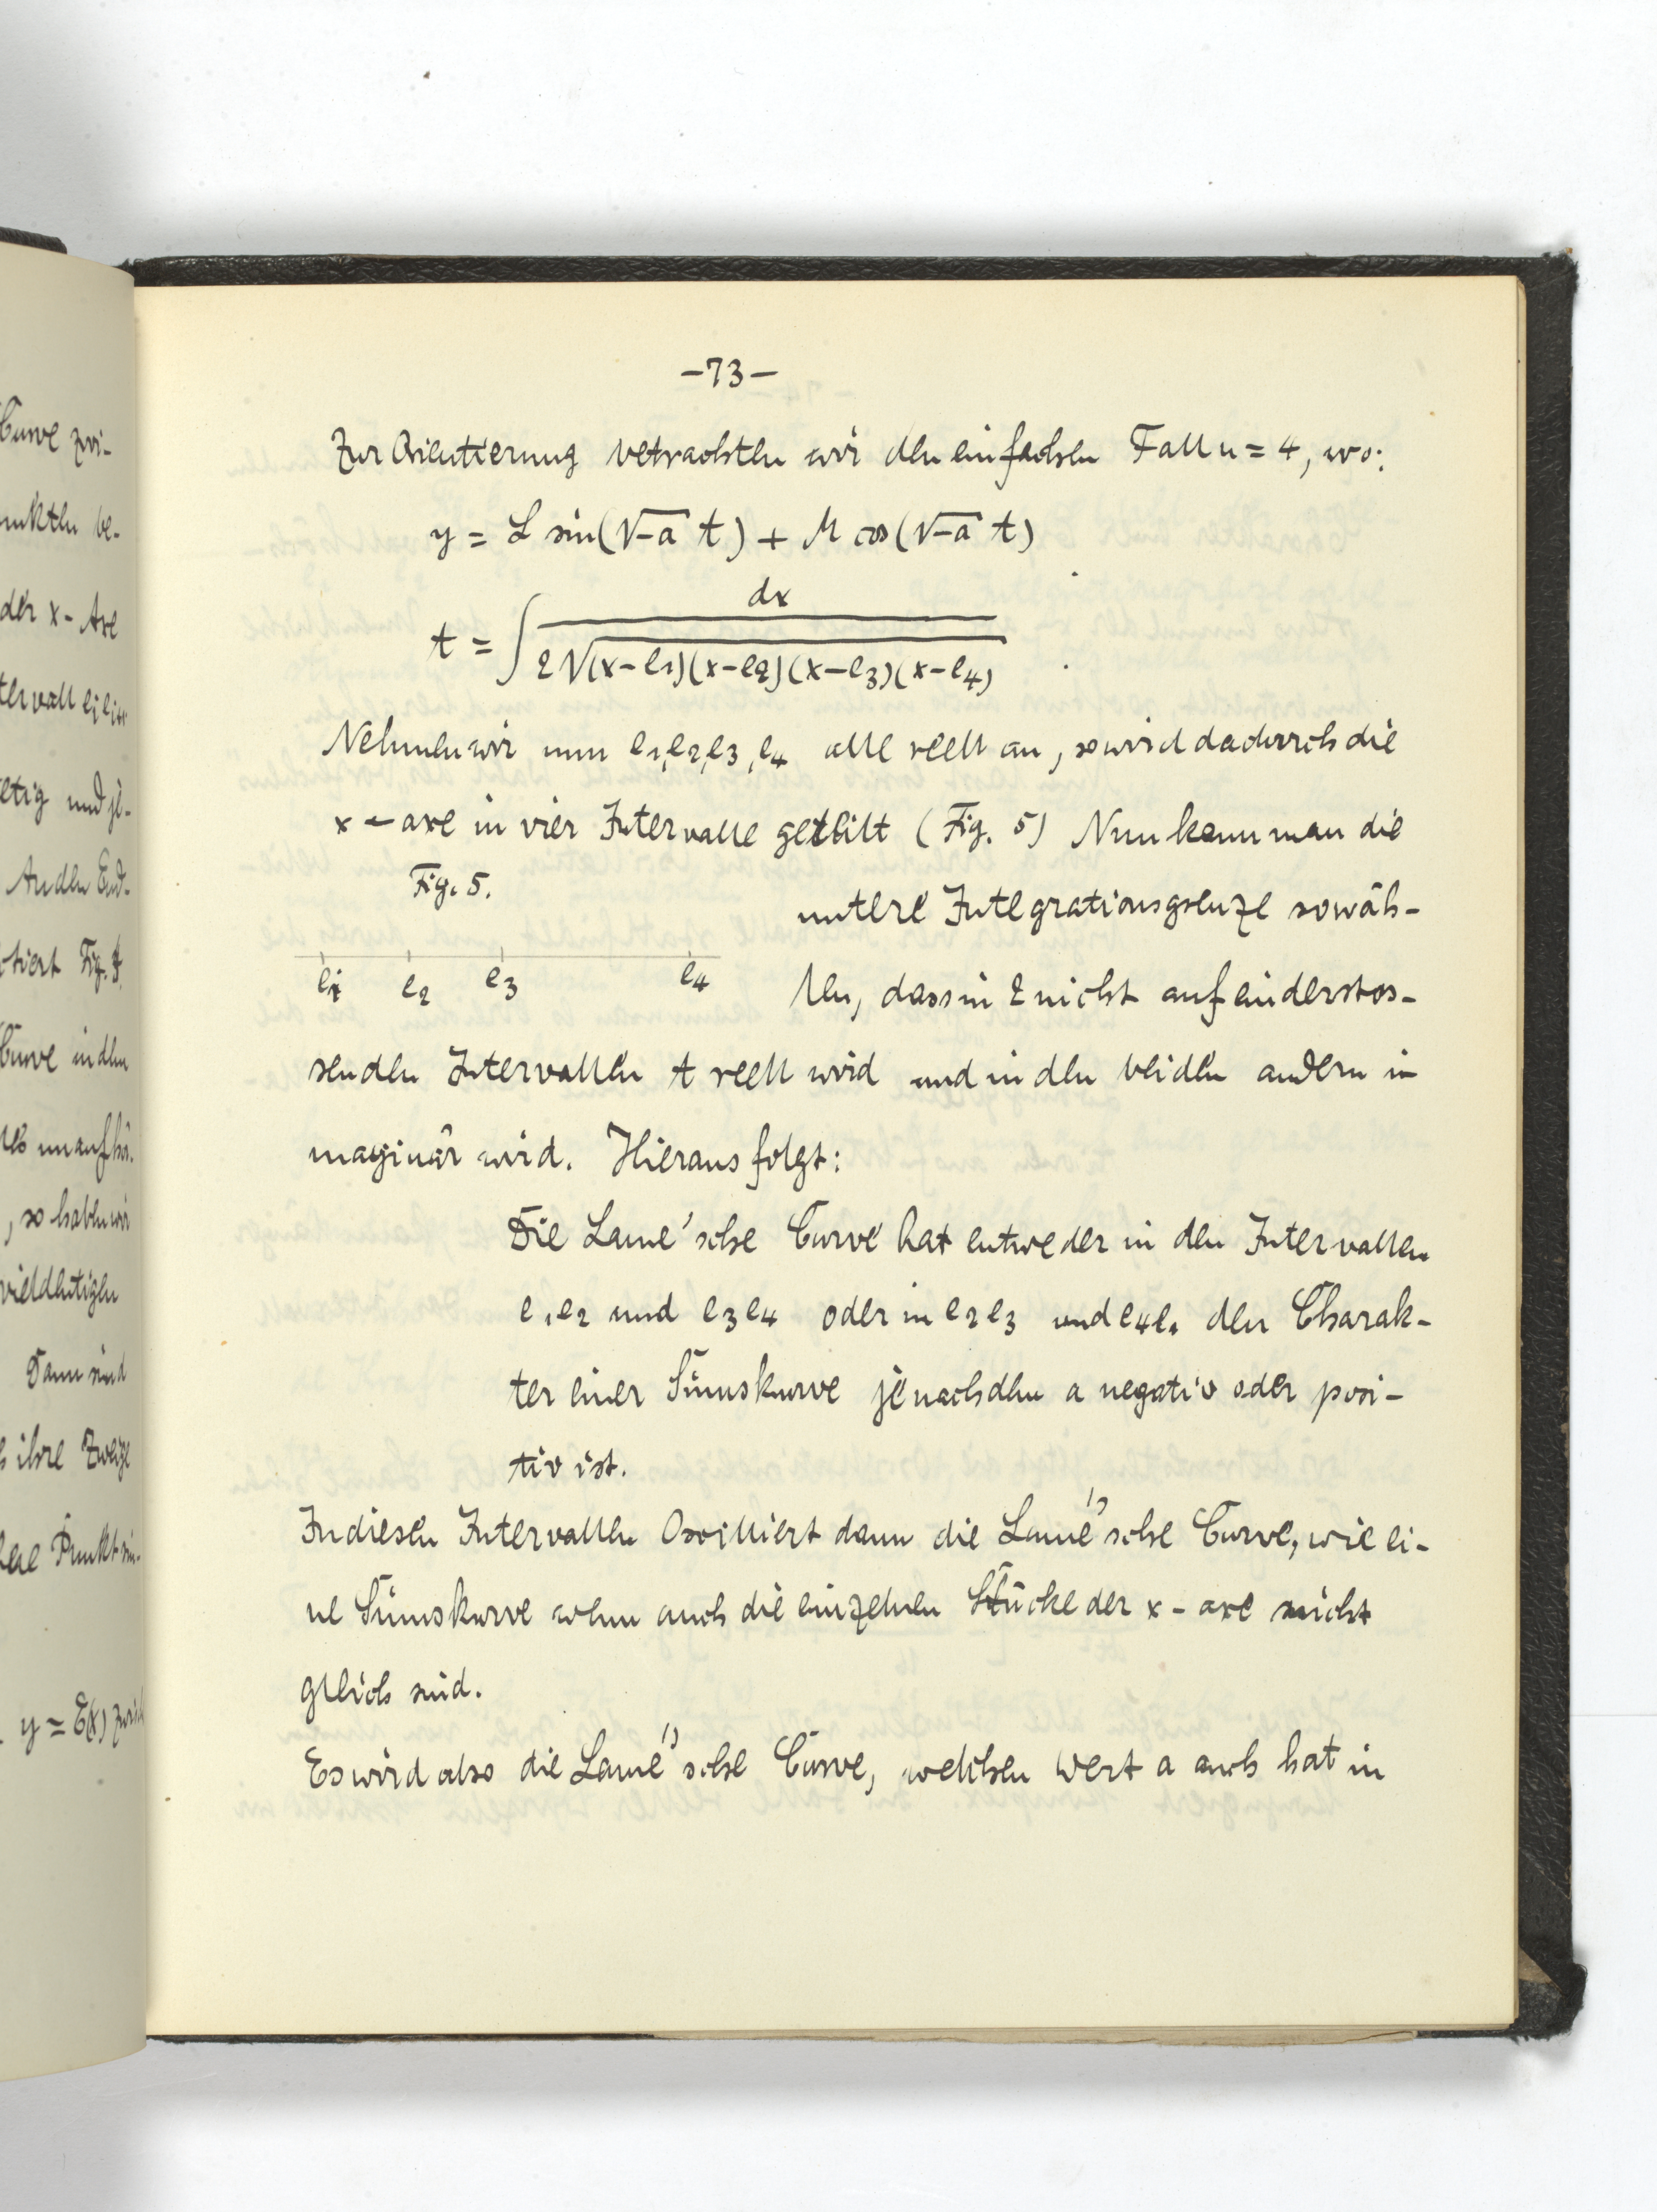 Curve zwi-
unkten be-
der x-Axe
tervall eiei+1
etig und je-
An den End-
otiert Fig. 4.
Curve in den
unaufhö-
, so haben wir
vieldeutigen
Dann sind
ihre Zweige
Punkt
y = E(x)
-73-
Zur Orientierung betrachten wir den einfachsen Fall n = 4, wo:
y = L sin(√-a t) + M cos(√-a t)
t = ∫ dx / 2√(x-e1)(x-e2)(x-e3)(x-e4)
Nehmen wir nun e1,e2,e3,e4 alle reell an, so wird dadurch die
x-axe in vier Intervalle geteilt (Fig. 5) Nun kann man die
Fig. 5.
e1 e2 e3 e4
untere Integrationsgrenze so wäh-
len, dass in 2 nicht aufeinderstos-
senden Intervallen t reell wird und in den beiden andern i-
maginär wird. Hieraus folgt:
Die Lamé'sche Curve hat entweder in den Intervallen
e1e2 und e3e4 oder in e2e3 und e4e1 den Charak-
ter einer Sinuskurve je nachdem a negativ oder posi-
tiv ist.
In diesen Intervallen Oscilliert dann die Lamé'sche Curve, wie ei-
ne Sinuskurve wenn auch die einzelnen Stücke der x-axe nicht
gleich sind.
Es wird also die Lamé'sche Curve, welchen Wert a auch hat in